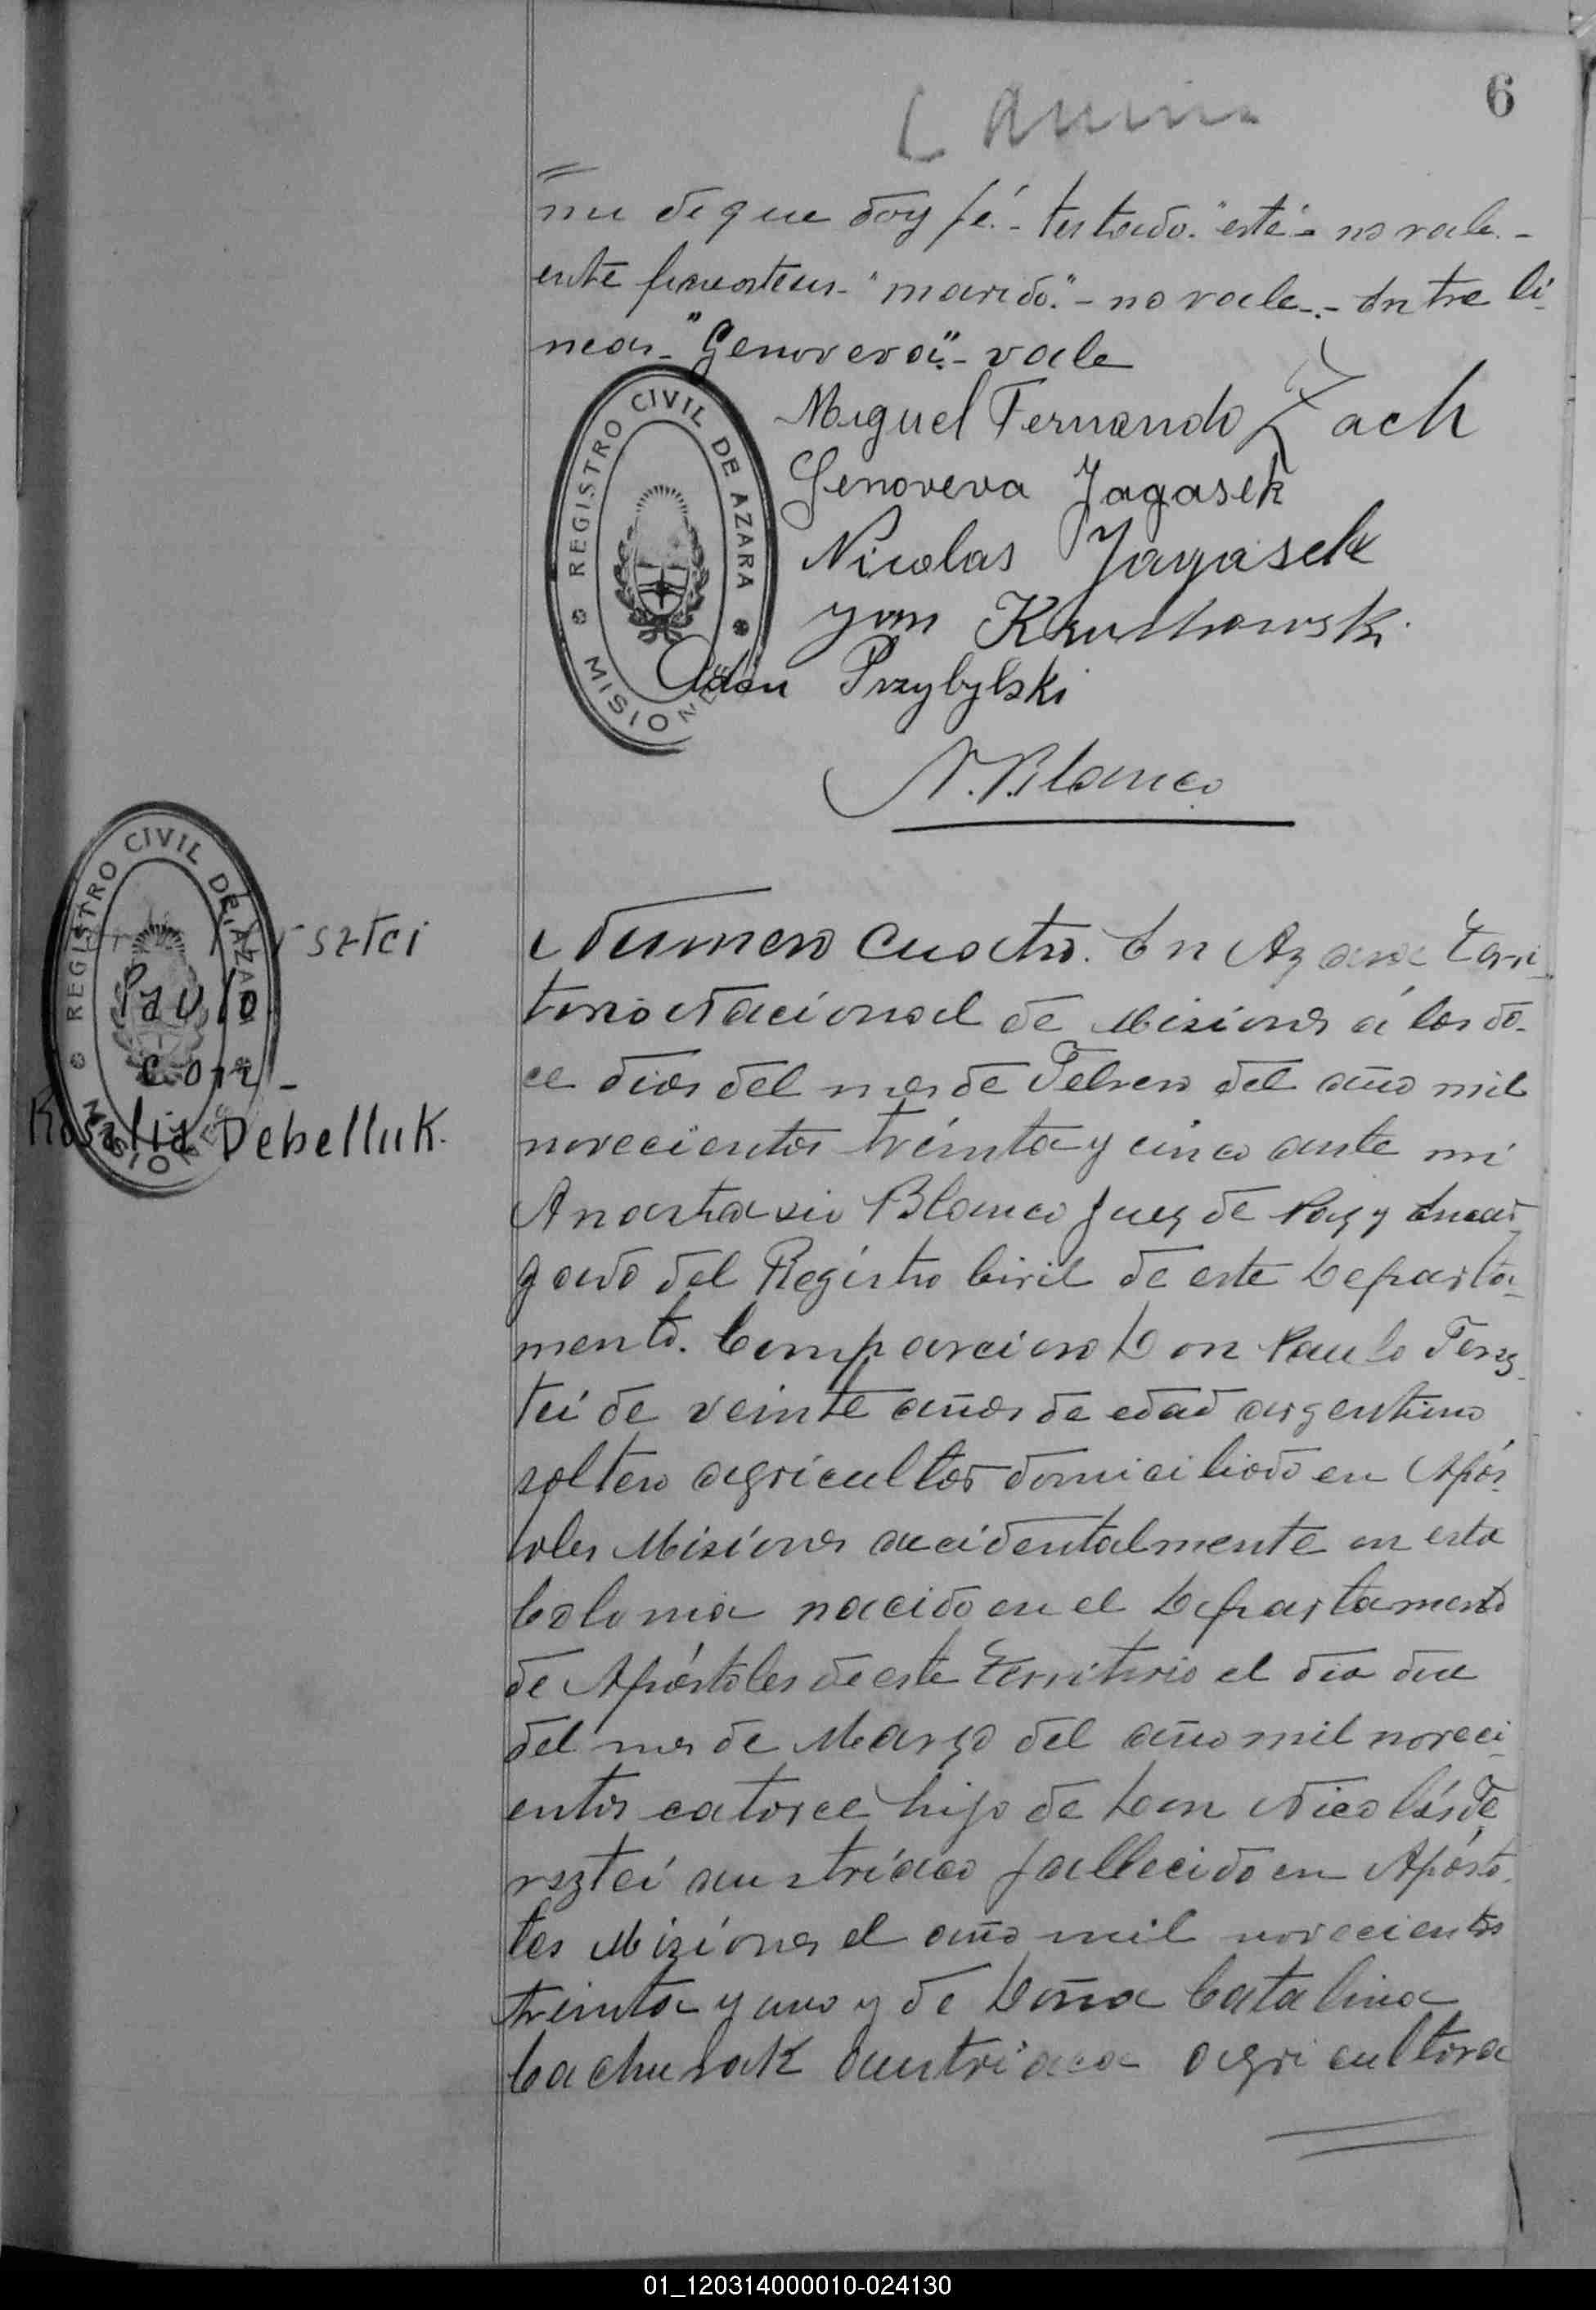 6
mi de que doy fé.- testado. "esté" no vale.-
"marido."- no vale.-.- Entre lí-
neas- "Genoveva".- vale
Miguel Fernando Zach
Genoveva Jagasek
Nicolas Jagasek
Adan Przybylski
A. Blanco
REGISTRO CIVIL DE AZARA
MISIONES
REGISTRO CIVIL DE AZARA
MISIONES
rsztei
Paulo
con-
Rosalia Debelluk.
Número cuatro. En Azara Terri-
torio Nacional de Misiones á los do-
ce dias del mes de Febrero del año mil
novecientos treinta y cinco ante mí
Anastasio Blanco Juez de Paz y Encar-
gado del Registro Civil de este Departa-
mento. Comparecieron Don Paulo Tersz-
tei de veinte años de edad argentino
soltero agricultor domiciliado en Após-
toles Misiones accidentalmente en esta
Colonia nacido en el Departamento
de Apóstoles de este Territorio el dia
del mes de Marzo del año mil noveci-
entos catorce hijo de Don Nicolás Te
rsztei austríaco fallecido en Apósto-
les Misiones el año mil novecientos
treinta y uno y de Doña Catalina
austriaca agricultora
01_120314000010-024130